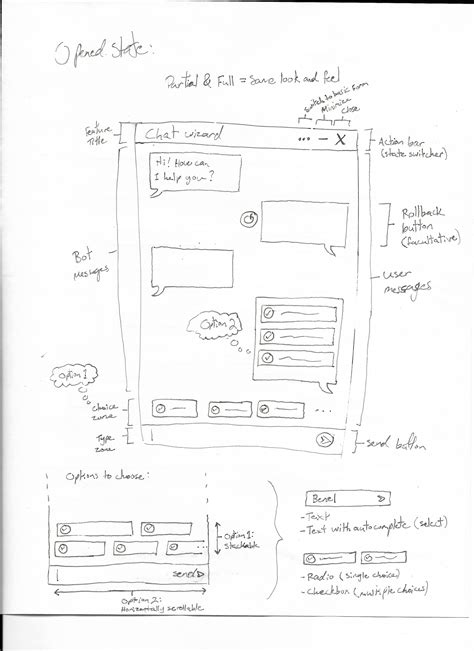 Opened State:
Partial & Full = Same look and feel
Switch to basic form
Minimize
Close
Feature
Title
Chat wizard
... – X
Action bar
(state switcher)
Hi! How can
I help you?
Rollback
button
(facultative)
Bot
messages
User
messages
Option 2
Option 1
Choice
zone
...
Type
zone
send button
Options to choose:
Option 1:
Stackable
send
Option 2:
Horizontally scrollable
- Text
- Text with autocomplete (select)
- Radio (single choice)
- Checkbox (multiple choices)